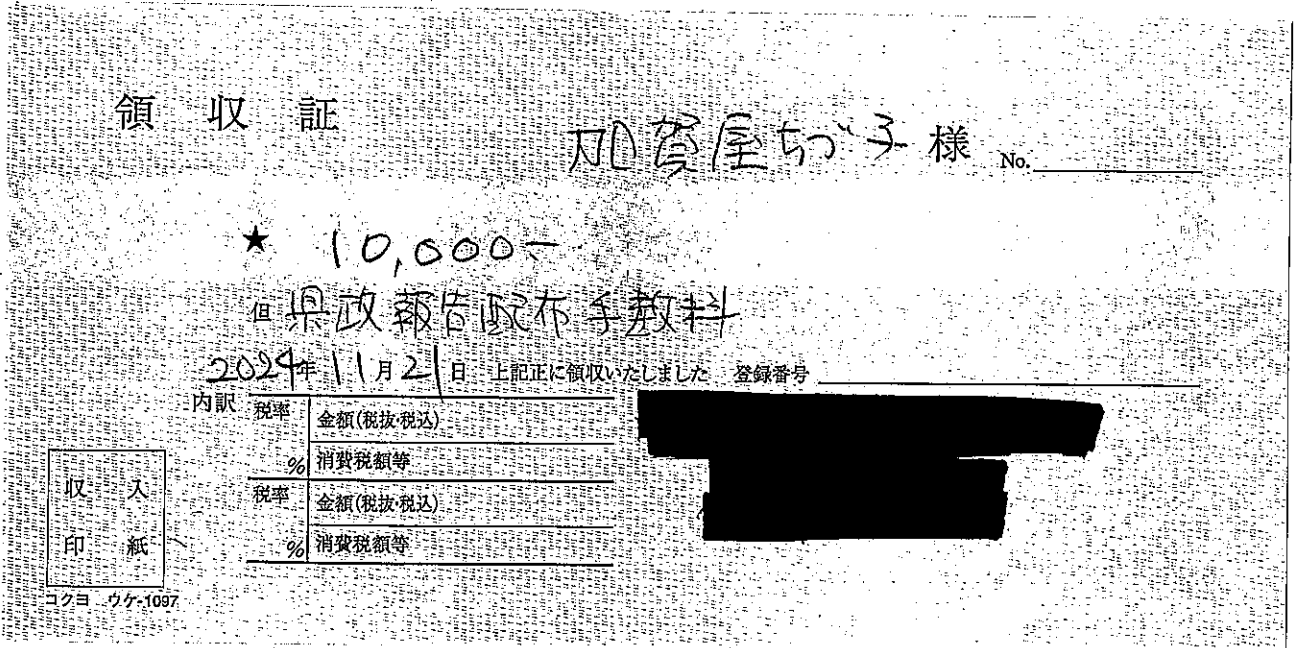 領収証
加賀屋ちづ子 様 No.
★ 10,000-
但 県政報告配布手数料
2024年11月21日 上記正に領収いたしました 登録番号
内訳 税率 % 金額(税抜・税込)
消費税額等
税率 % 金額(税抜・税込)
消費税額等
収入
印紙
コクヨ ウケ-1097